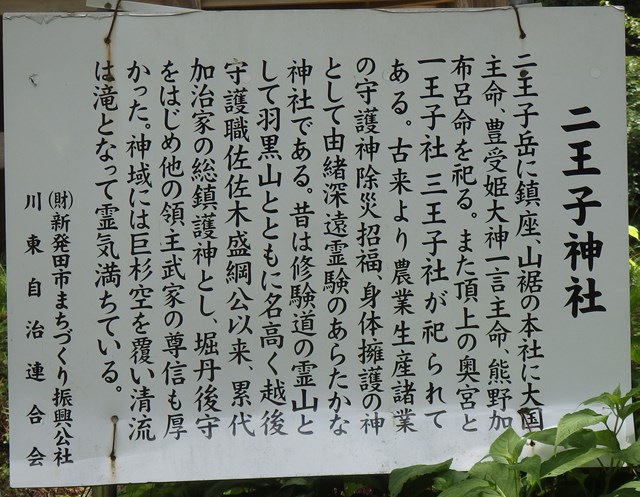 二王子神社
二王子岳に鎮座、山裾の本社に大国
主命、豊受姫大神一言主命、熊野加
布呂命を祀る。また頂上の奥宮と
一王子社 三王子社が祀られて
ある。古来より農業生産諸業
の守護神除災招福、身体擁護の神
として由緒深遠霊験のあらたかな
神社である。昔は修験道の霊山と
して羽黒山とともに名高く越後
守護職佐佐木盛綱公以来、累代
加治家の総鎮護神とし、堀丹後守
をはじめ他の領主武家の尊信も厚
かった。神域には巨杉空を覆い清流
は滝となって霊気満ちている。
(財)新発田市まちづくり振興公社
川東自治連合会